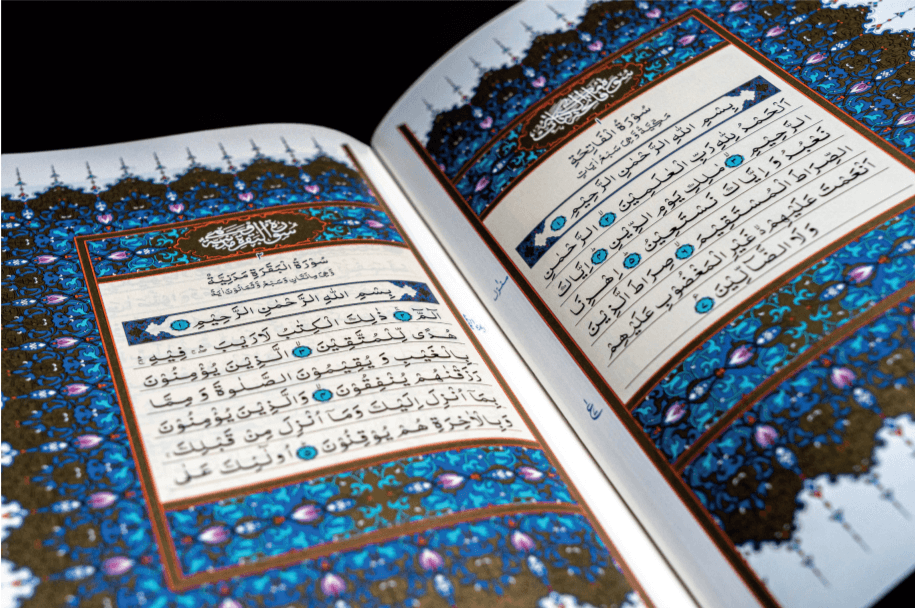 سُورَةُ الْفَاتِحَةِ
مَكِّيَّةٌ وَهِيَ سَبْعُ اٰيَاتٍ
بِسْمِ اللهِ الرَّحْمٰنِ الرَّحِيمِ ١
اَلْحَمْدُ لِلّٰهِ رَبِّ الْعَالَمِينَ ٢ اَلرَّحْمٰنِ
الرَّحِيمِ ٣ مٰلِكِ يَوْمِ الدِّينِ ٤ اِيَّاكَ
نَعْبُدُ وَ اِيَّاكَ نَسْتَعِينُ ٥ اِهْدِنَا
الصِّرَاطَ الْمُسْتَقِيمَ ٦ صِرَاطَ الَّذِينَ
اَنْعَمْتَ عَلَيْهِمْ غَيْرِ الْمَغْضُوبِ عَلَيْهِمْ
وَلَا الضَّالِّينَ ٧
سُورَةُ الْبَقَرَةِ مَدَنِيَّةٌ
بِسْمِ اللهِ الرَّحْمٰنِ الرَّحِيمِ ١
الٓمٓ ٢ ذٰلِكَ الْكِتٰبُ لَا رَيْبَ فِيهِ
هُدًى لِلْمُتَّقِينَ ٣ اَلَّذِينَ يُؤْمِنُونَ
بِالْغَيْبِ وَ يُقِيمُونَ الصَّلٰوةَ وَ مِمَّا
رَزَقْنٰهُمْ يُنْفِقُونَ ٤ وَالَّذِينَ يُؤْمِنُونَ
بِمَا اُنْزِلَ اِلَيْكَ وَمَا اُنْزِلَ مِنْ قَبْلِكَ
وَبِالْاٰخِرَةِ هُمْ يُوقِنُونَ ٥ اُولٰٓئِكَ عَلٰى